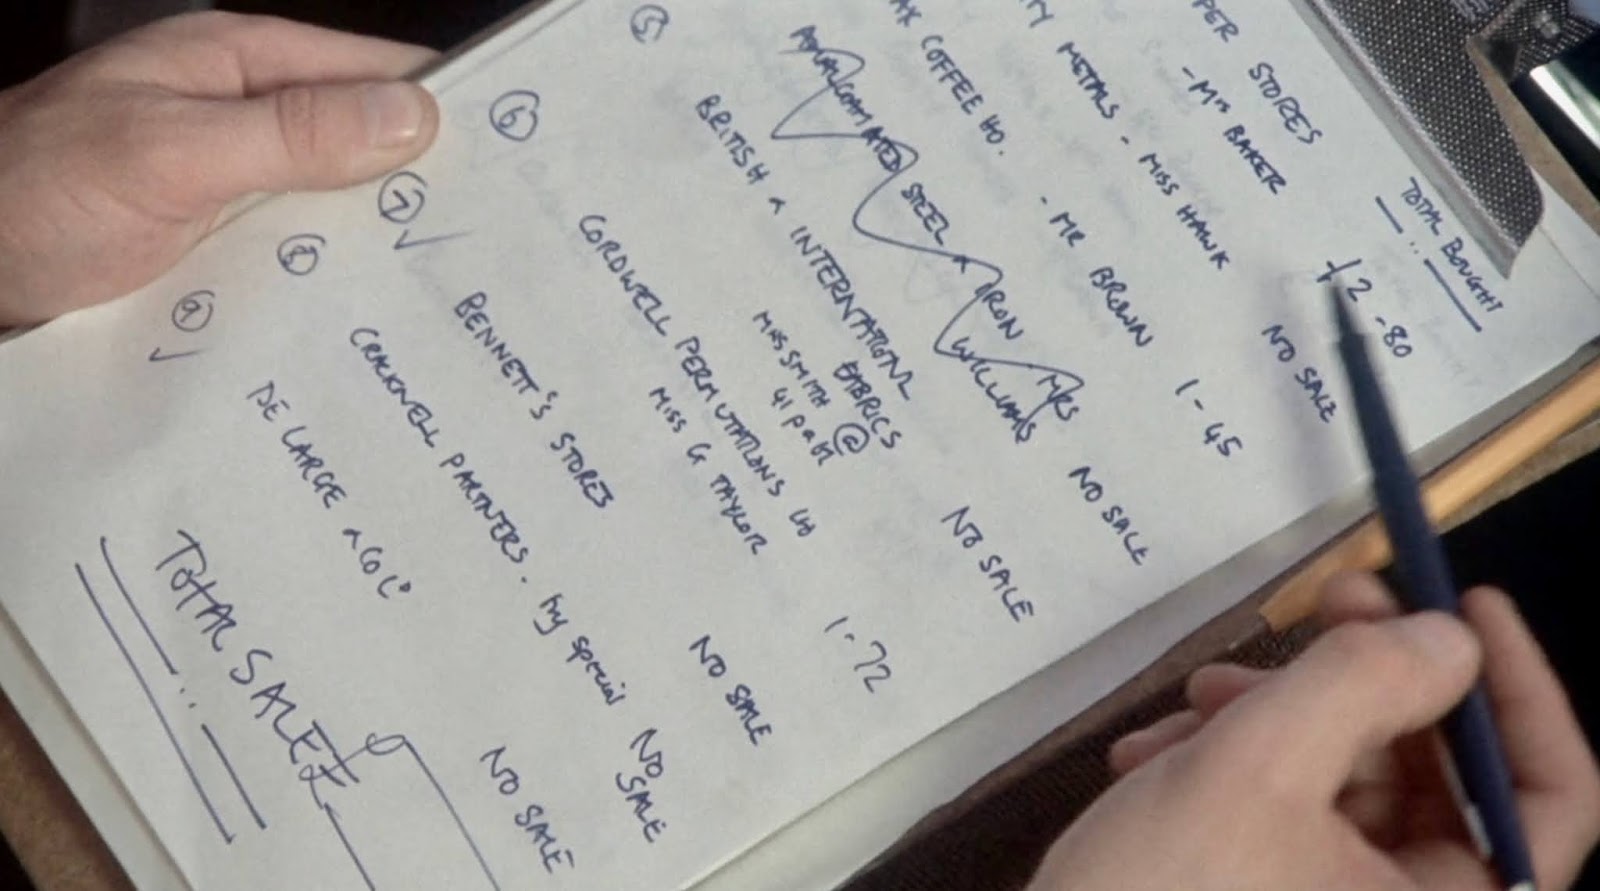 TOTAL BOUGHT
PER STORES
- Mrs BAKER £2-80
TY METALS - MISS HAWK NO SALE
AX COFFEE HO. - MR BROWN 1-45
AMALGAMATED STEEL & IRON MRS
WILLIAMS NO SALE
5 BRITISH & INTERNATIONL
FABRICS NO SALE
MRS SMITH @
41
6 CORDWELL PERMUTATIONS Ltd 1-72
MISS G TAYLOR
7 ✓ BENNETT'S STORES NO SALE
8 CRACKNELL PARTNERS. by special NO
SALE
9 ✓ DE LARGE & CO NO SALE
TOTAL SALE £